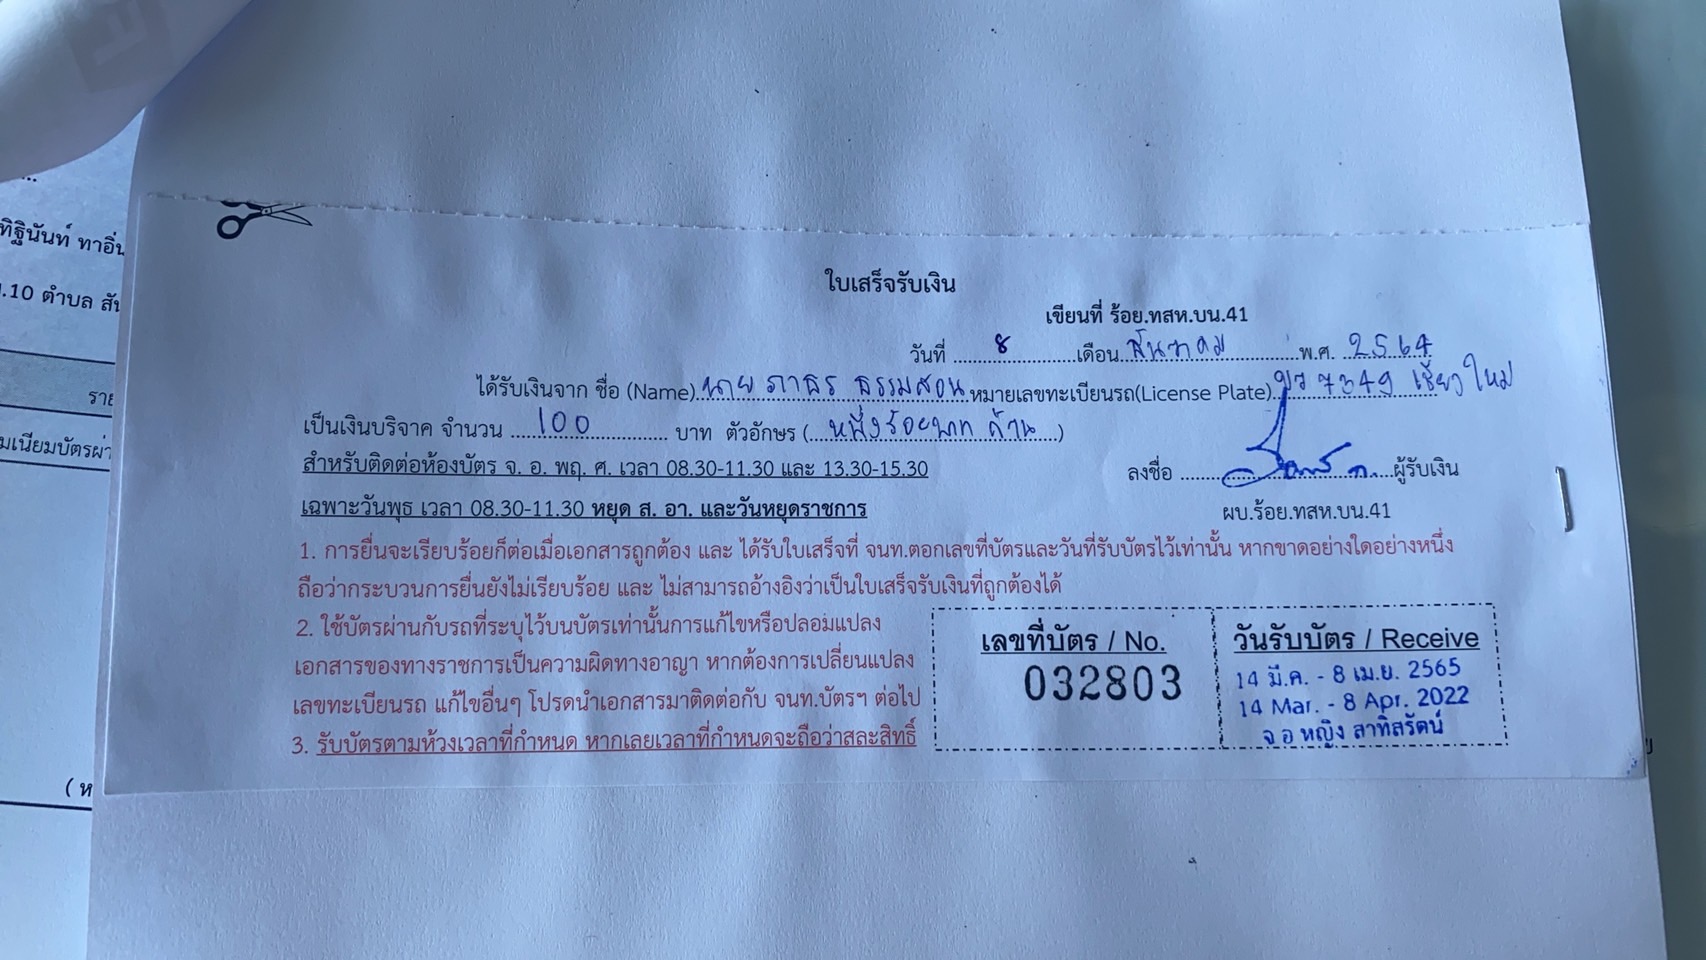 ทิฐินันท์ ทาอิ่น
.10 ตำบล สัน
ราย
มเนียมบัตรผ่า
( ห
ใบเสร็จรับเงิน
เขียนที่ ร้อย.ทสห.บน.41
วันที่ 8 เดือน ธันวาคม พ.ศ. 2564
ได้รับเงินจาก ชื่อ (Name) นาย ภาธร ธรรมสอน หมายเลขทะเบียนรถ(License Plate) 7349 เชียงใหม่
เป็นเงินบริจาค จำนวน 100 บาท ตัวอักษร ( หนึ่งร้อยบาทถ้วน )
สำหรับติดต่อห้องบัตร จ. อ. พฤ. ศ. เวลา 08.30-11.30 และ 13.30-15.30
ลงชื่อ ผู้รับเงิน
เฉพาะวันพุธ เวลา 08.30-11.30 หยุด ส. อา. และวันหยุดราชการ
ผบ.ร้อย.ทสห.บน.41
1. การยื่นจะเรียบร้อยก็ต่อเมื่อเอกสารถูกต้อง และ ได้รับใบเสร็จที่ จนท.ตอกเลขที่บัตรและวันที่รับบัตรไว้เท่านั้น หากขาดอย่างใดอย่างหนึ่ง
ถือว่ากระบวนการยื่นยังไม่เรียบร้อย และ ไม่สามารถอ้างอิงว่าเป็นใบเสร็จรับเงินที่ถูกต้องได้
2. ใช้บัตรผ่านกับรถที่ระบุไว้บนบัตรเท่านั้นการแก้ไขหรือปลอมแปลง
เอกสารของทางราชการเป็นความผิดทางอาญา หากต้องการเปลี่ยนแปลง
เลขทะเบียนรถ แก้ไขอื่นๆ โปรดนำเอกสารมาติดต่อกับ จนท.บัตรฯ ต่อไป
3. รับบัตรตามห้วงเวลาที่กำหนด หากเลยเวลาที่กำหนดจะถือว่าสละสิทธิ์
เลขที่บัตร / No.
032803
วันรับบัตร / Receive
14 มี.ค. - 8 เม.ย. 2565
14 Mar. - 8 Apr. 2022
จ อ หญิง สาทิสรัตน์